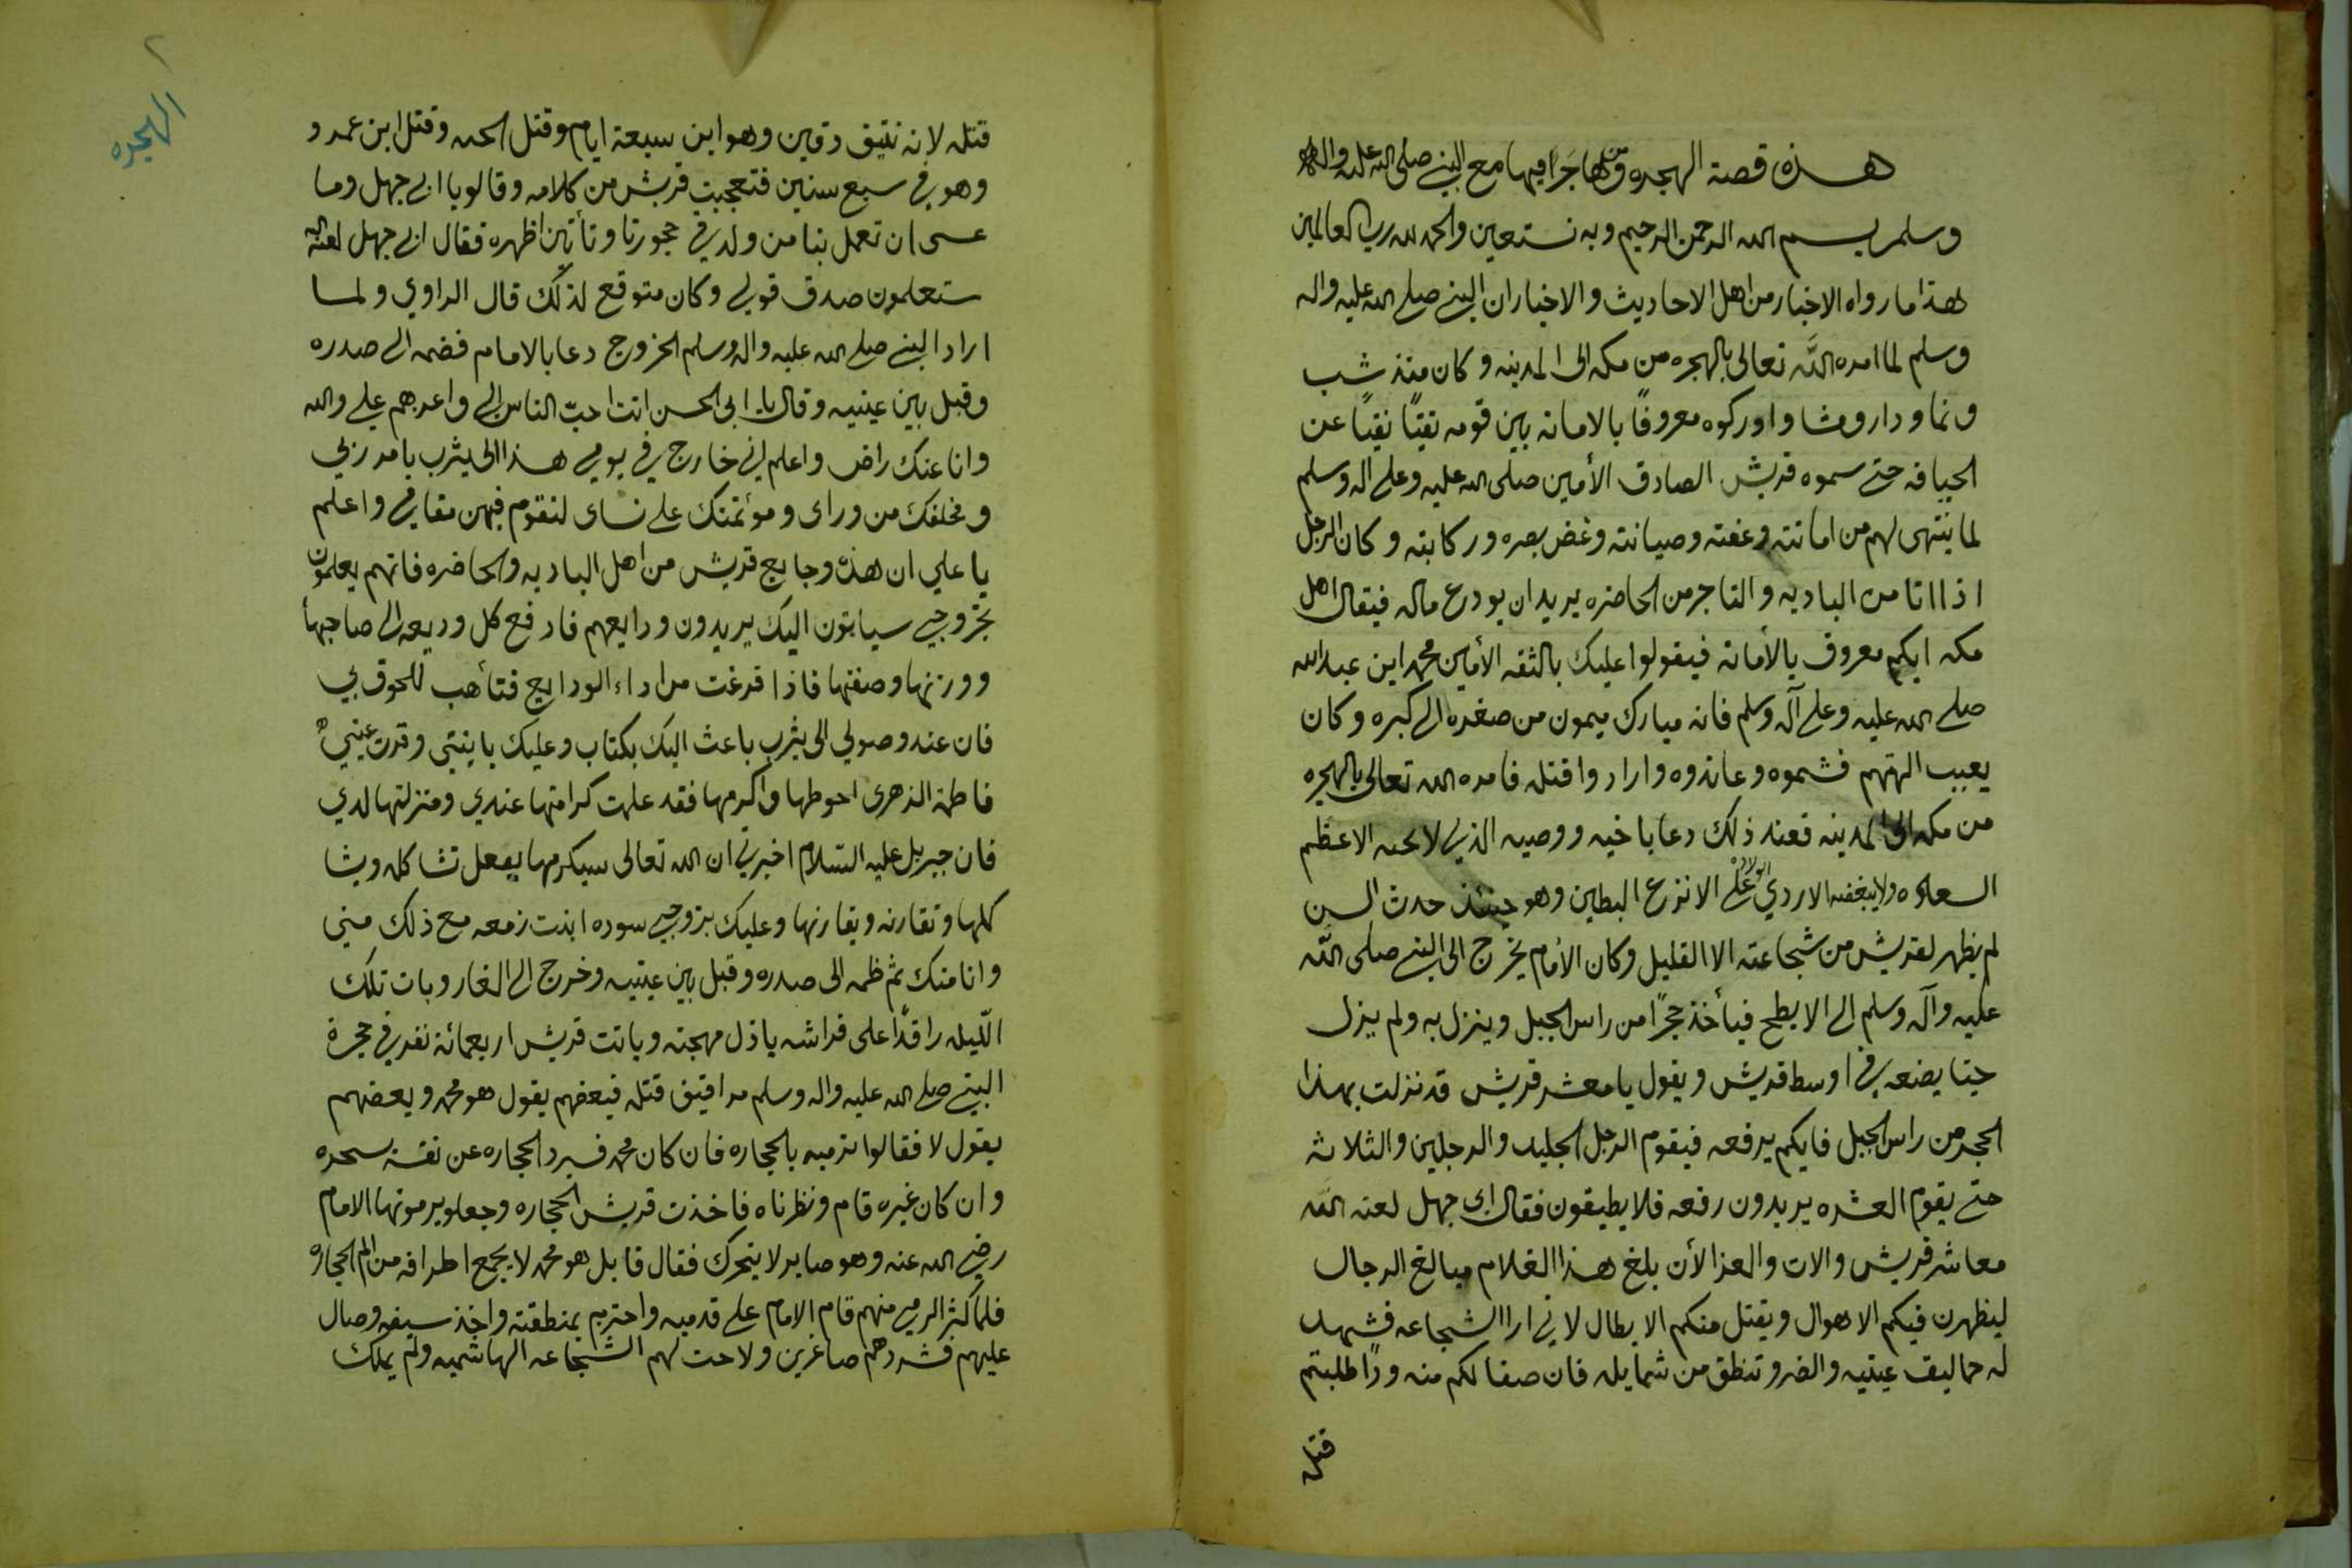 هذه قصة الهجره وما جرا فيها مع النبي صلى الله عليه واله
وسلم بسم الله الرحمن الرحيم وبه نستعين والحمد لله رب العالمين
هذا ما رواه الاخيار من اهل الاحاديث والاخبار ان النبي صلى الله عليه واله
وسلم لما امره الله تعالى بالهجره من مكه الى المدينه وكان منذ شب
ونما ودار ومشا واوركوه معروفًا بالامانه بين قومه تقيًا نقيًا عن
الخيافه حتى سموه قريش الصادق الأمين صلى الله عليه وعلى اله وسلم
لما ينتهى لهم من امانته وعفته وصيانته وغض بصره وركابته وكان الرجل
اذا اتا من الباديه والتاجر من الحاضره يريد ان يودع ماله فيقال اهل
مكه ايكم معروف بالأمانه فيقولوا عليك بالثقه الأمين محمد ابن عبد الله
صلى الله عليه وعلى آله وسلم فانه مبارك ميمون من صغره الى كبره وكان
يعيب الهتهم فشموه وعاندوه وارادوا قتله فامره الله تعالى بالهجره
من مكه الى المدينه فعند ذلك دعا باخيه ووصيه الذي لا يحبه الا عظيم
السعاده ولا يبغضه الا ردي الولاده علي الانزع البطين وهو حينئذ حدث السن
لم يظهر لقريش من شجاعته الا القليل وكان الأمام يخرج الى النبي صلى الله
عليه وآله وسلم الى الابطح فيأخذ حجرًا من راس الجبل وينزل به ولم يزل
حتا يضعه في اوسط قريش ويقول يا معشر قريش قد نزلت بهذا
الحجر من راس الجبل فايكم يرفعه فيقوم الرجل الجليد والرجلين والثلاثه
حتى يقوم العشره يريدون رفعه فلا يطيقون فقال ابى جهل لعنه الله
معاشر قريش والات والعزا لأن بلغ هذا الغلام مبالغ الرجال
ليظهرن فيكم الاهوال ويقتل منكم الابطال لاني ارا الشجاعه فشهد
له حماليف عينيه والضر وتنطق من شمايله فان صفا لكم منه ودًا طلبتم
قتله
الهجره
قتله لانه نتيق دقين وهو ابن سبعة ايام وقتل الحيه وقتل ابن عمرو
وهو في سبع سنين فتعجبت قريش من كلامه وقالو يا ابي جهل وما
عسى ان تعمل بنا من ولد في حجورنا وتأتين اظهره فقال ابي جهل لعنه الله
ستعلمون صدق قولي وكان متوقع لذلك قال الراوي ولما
اراد النبي صلى الله عليه واله وسلم الخروج دعا بالامام فضمه الى صدره
وقبل بين عينيه وقال يا ابى الحسن انت احبّ الناس الي واعزهم علي والله
وانا عنك راض واعلم اني خارج في يومي هذا الى يثرب بامر ربي
ومخلفك من وراى ومؤتمنك على نساى لتقوم فيهن مقامي واعلم
يا علي ان هذه وجايع قريش من اهل الباديه والحاضره فانهم يعلمون
بخروجي سيأتون اليك يريدون ودايعهم فادفع كل وديعه الى صاحبها
ووزنها وصفتها فاذا فرغت من اداء الودايع فتأهب للحوق بي
فان عند وصولي الى يثرب باعث اليك بكتاب وعليك بابنتي وقرت عيني
فاطمة الزهرى احوطها واكرمها فقد علمت كرامتها عندي ومنزلتها لدي
فان جبريل عليه السلام اخبرني ان الله تعالى سيكرمها بفعل تشاكله ويشا
كلها وتقارنه ويقارنها وعليك بزوجي سوده ابنت زمعه مع ذلك مني
وانا منك ثم ظمه الى صدره وقبل بين عينيه وخرج الى الغار وبات تلك
الليله راقدًا على فراشه باذل مهجته وباتت قريش اربعمائة نفر في حجرة
النبي صلى الله عليه واله وسلم مراقبين قتله فبعضهم يقول هو محمد وبعضهم
يقول لا فقالوا نرميه بالحجاره فان كان محمد فسيرد الحجاره عن نفسه بسحره
وان كان غيره قام ونظرناه فاخذت قريش الحجاره وجعلو يرمونها الامام
رضي الله عنه وهو صابر لا يتحرك فقال قايل هو محمد لا يجمع اطرافه من الم الحجاره
فلما كثر الرمي منهم قام الامام على قدميه واحتزم بمنطقته واخذ سيفه وصال
عليهم فشردهم صاغرين ولاحت لهم الشجاعه الهاشميه ولم يملك